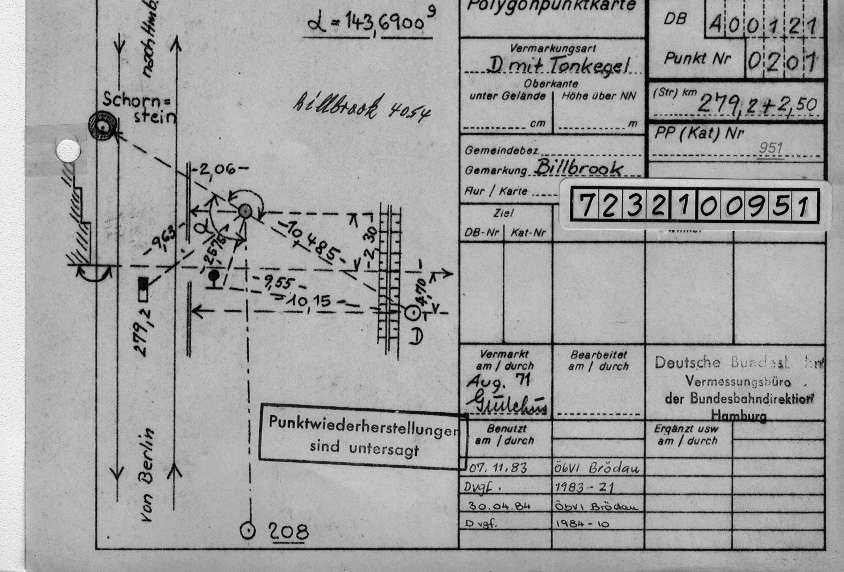 α = 143,6900ᵍ
nach Hmb.
Schorn=
stein
Billbrook 4054
-2,06-
α
-9,63-
25,75
-10,485-
-2,30-
-9,55-
-10,15-
4,70
D
279,2
von Berlin
208
Punktwiederherstellungen
sind untersagt
Polygonpunktkarte
DB A00121
Punkt Nr 0201
Vermarkungsart
D mit Tonkegel
Oberkante
unter Gelände
Höhe über NN
cm
m
(Str) km 279,2+2,50
PP (Kat) Nr
951
Gemeindebez
Gemarkung Billbrook
Flur / Karte
7232100951
Ziel
DB-Nr
Kat-Nr
Vermarkt
am / durch
Aug. 71
Bearbeitet
am / durch
Deutsche Bundesbahn
Vermessungsbüro
der Bundesbahndirektion
Hamburg
Benutzt
am / durch
Ergänzt usw
am / durch
07.11.83 ÖbVI Brödau
Dvgf. 1983-21
30.04.84 ÖbVI Brödau
Dvgf. 1984-10